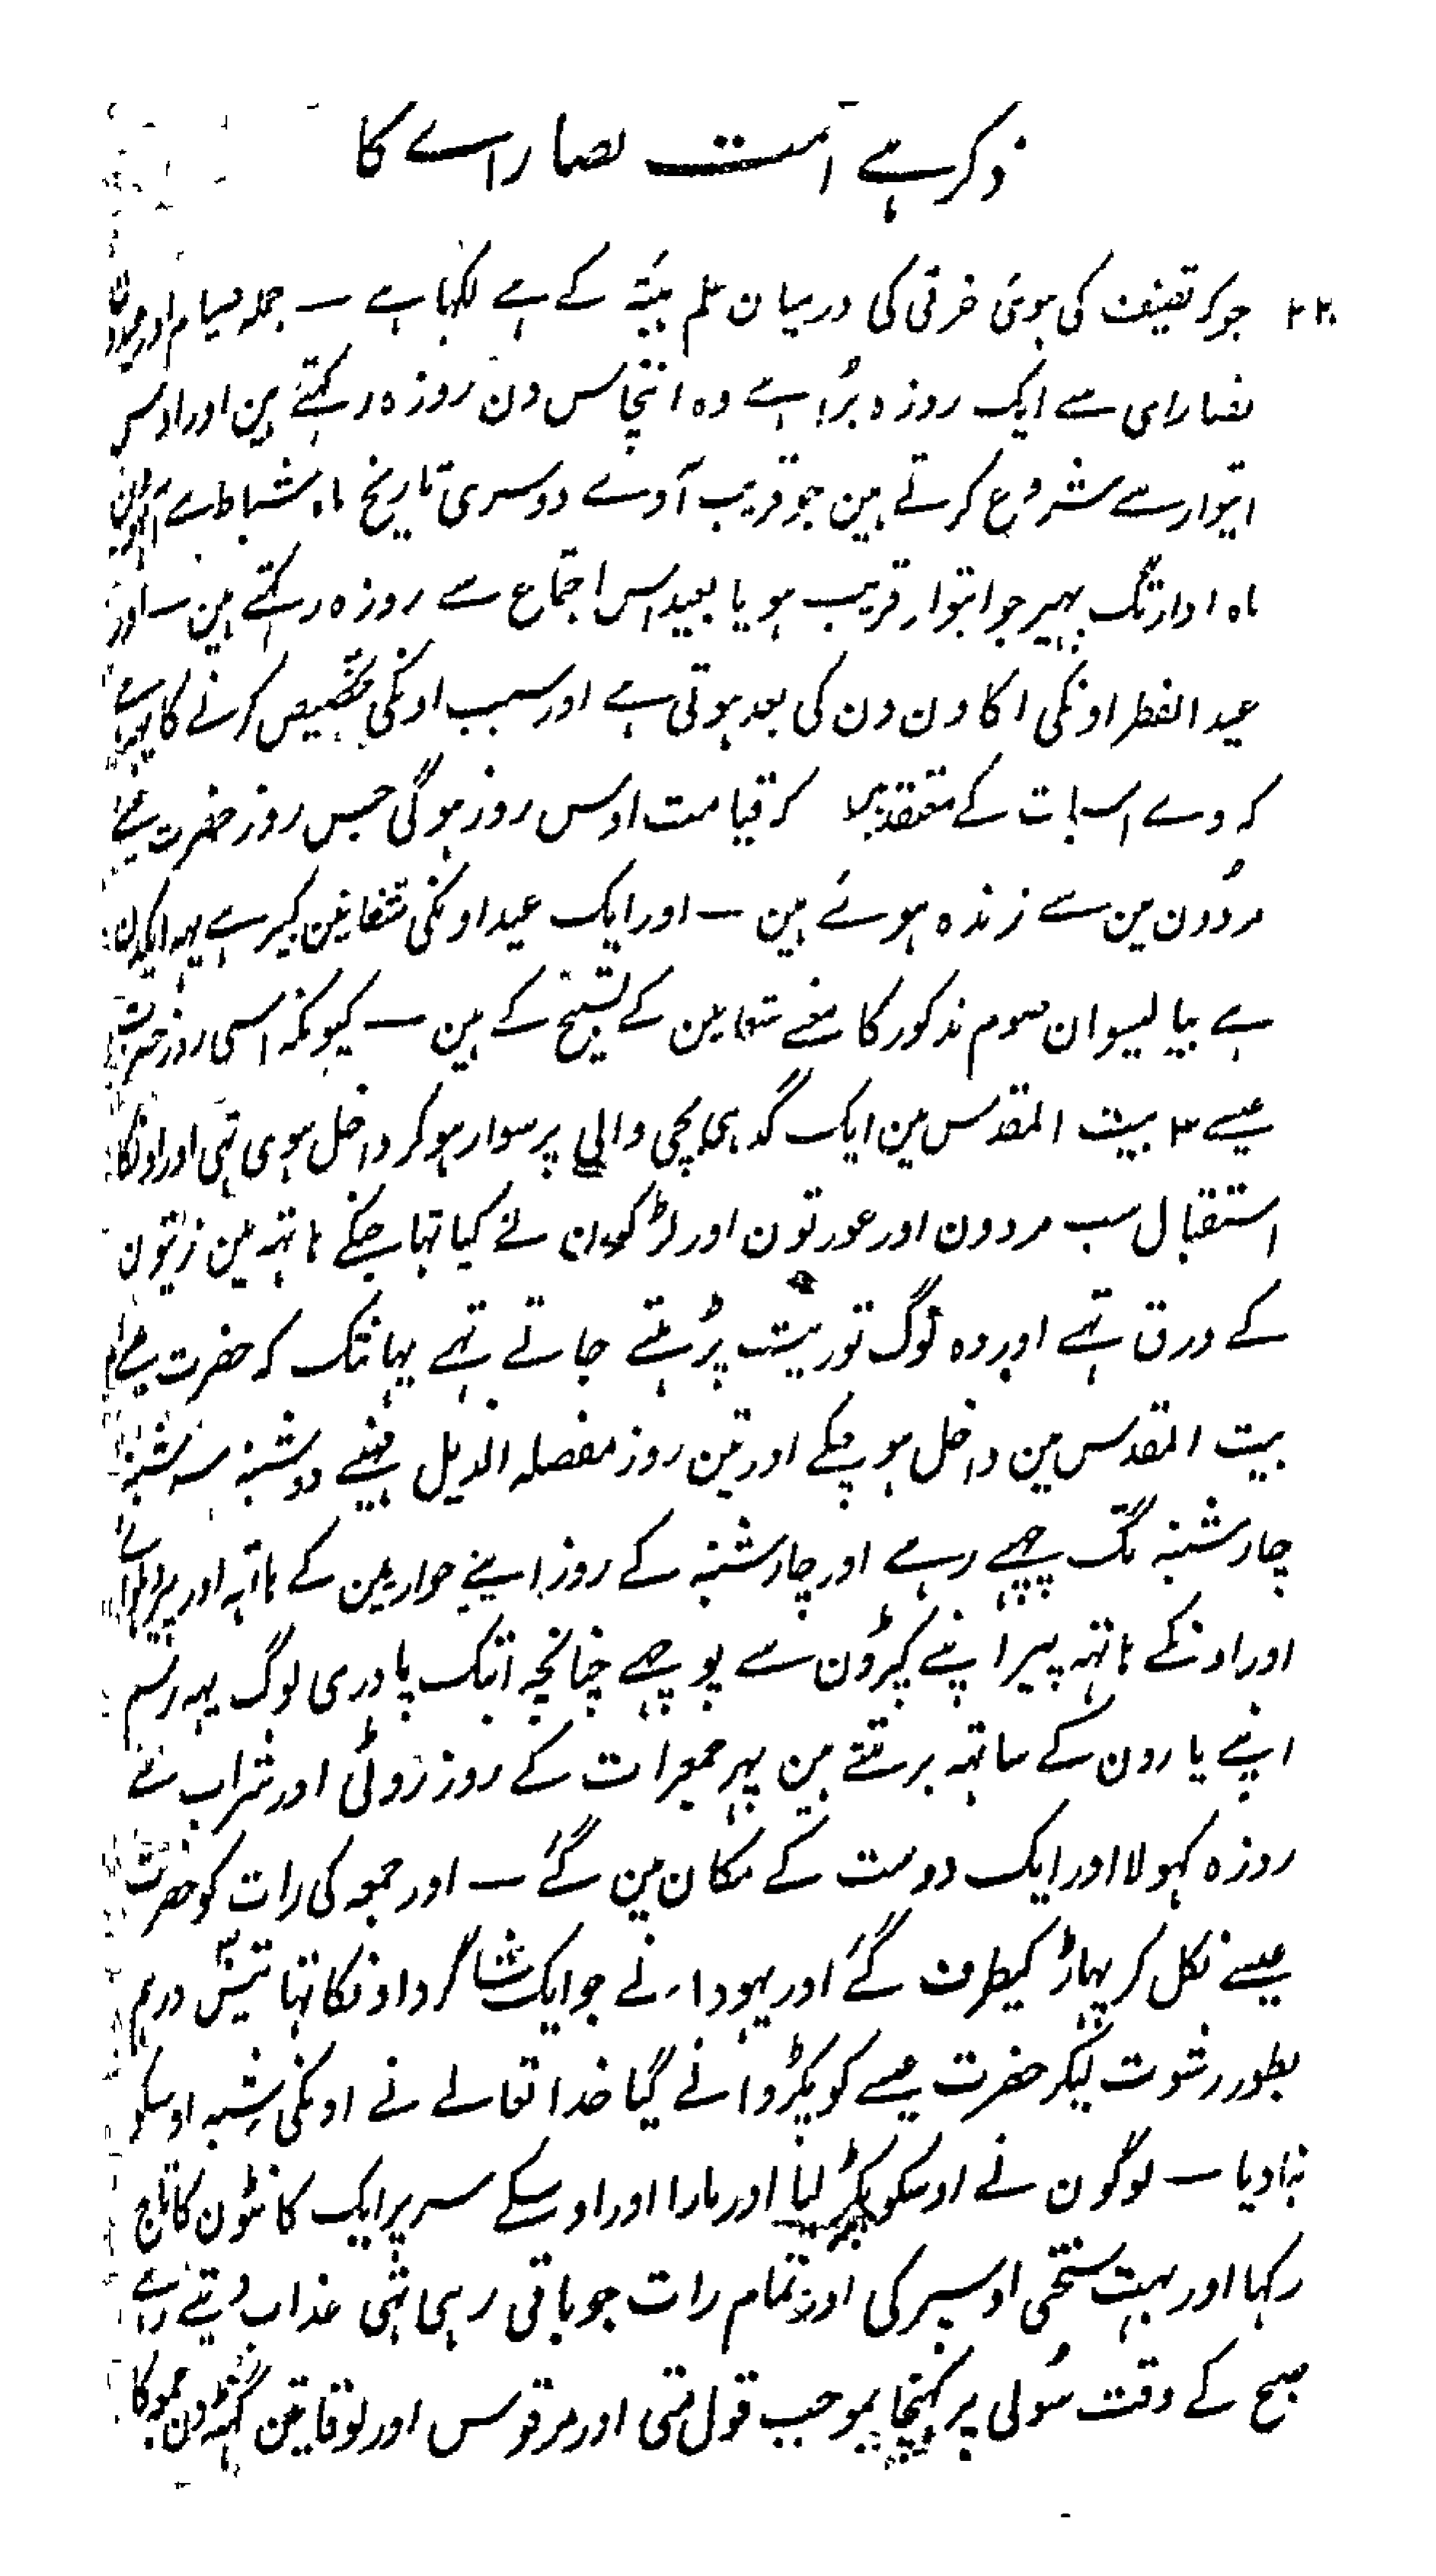 ذکر ہے امت نصاراے کا
جو کہ تصنیف کی ہوئی خرقی کی درمیان علم ہیئۃ کے ہے لکہا ہے — جملہ صیام اور
نصارای سے ایک روزہ بڑا ہے وہ انچاس دن روزہ رکہتے ہین اور اوس
اتوار سے شروع کرتے ہین جو قریب آوے دوسری تاریخ ماہ شباط سے
ماہ ادار تک پہیر جو اتوار قریب ہو یا بعید اس اجتماع سے روزہ رکہتے ہین — اور
عید الفطر اونکی اکاون دن کی بعد ہوتی ہے اور سبب اونکی تخصیص کرنے کا یہہ ہے
کہ وے اسبات کے معتقد ہین کہ قیامت اوس روز ہوگی جس روز حضرت عیسے
مردون مین سے زندہ ہوئے ہین — اور ایک عید اونکی شعانین کبیر ہے یہہ ایکدن
ہے بیالیسوان صوم مذکور کا معنے شعانین کے تسبیح کے ہین — کیونکہ اسی روز حضرت
عیسے ۴ بیت المقدس مین ایک گدہی بچی والی پر سوار ہو کر داخل ہوی تہی اور اونکا
استقبال سب مردون اور عورتون اور لڑکون نے کیا تہا جنکے ہاتہہ مین زیتون
کے ورق تہے اور وہ لوگ توریت پڑہتے جاتے تہے یہانتک کہ حضرت عیسے
بیت المقدس مین داخل ہو چکے اور تین روز مفصلہ الذیل یعنے دوشنبہ سہ شنبہ
چارشنبہ تک چہپے رہے اور چارشنبہ کے روز اپنے حواریین کے ہاتہہ اور پیر
اور اونکے ہاتہہ پیر اپنے کپڑون سے پوچہے چنانچہ ابتک پادری لوگ یہہ رسم
اپنے یارون کے ساتہہ برتتے ہین پہر جمعرات کے روز روٹی اور شراب سے
روزہ کہولا اور ایک دوست کے مکان مین گئے — اور جمعہ کی رات کو حضرت
عیسے نکل کر پہاڑ کیطرف گئے اور یہوداء نے جو ایک شاگرد اونکا تہا تیس درہم
بطور رشوت لیکر حضرت عیسے کو پکڑوانے گیا خدا تعالے نے اونکی شبہ اوسکو
بنا دیا — لوگون نے اوسکو پکڑ لیا اور مارا اور اوسکے سر پر ایک کانٹون کا تاج
رکہا اور بہت سختی اوسپر کی اور تمام رات جو باقی رہی تہی عذاب دیتے رہے
صبح کے وقت سولی پر کہنچا بموجب قول متی اور مرقوس اور لوقا تین گہنٹہ دن جمعہ کا